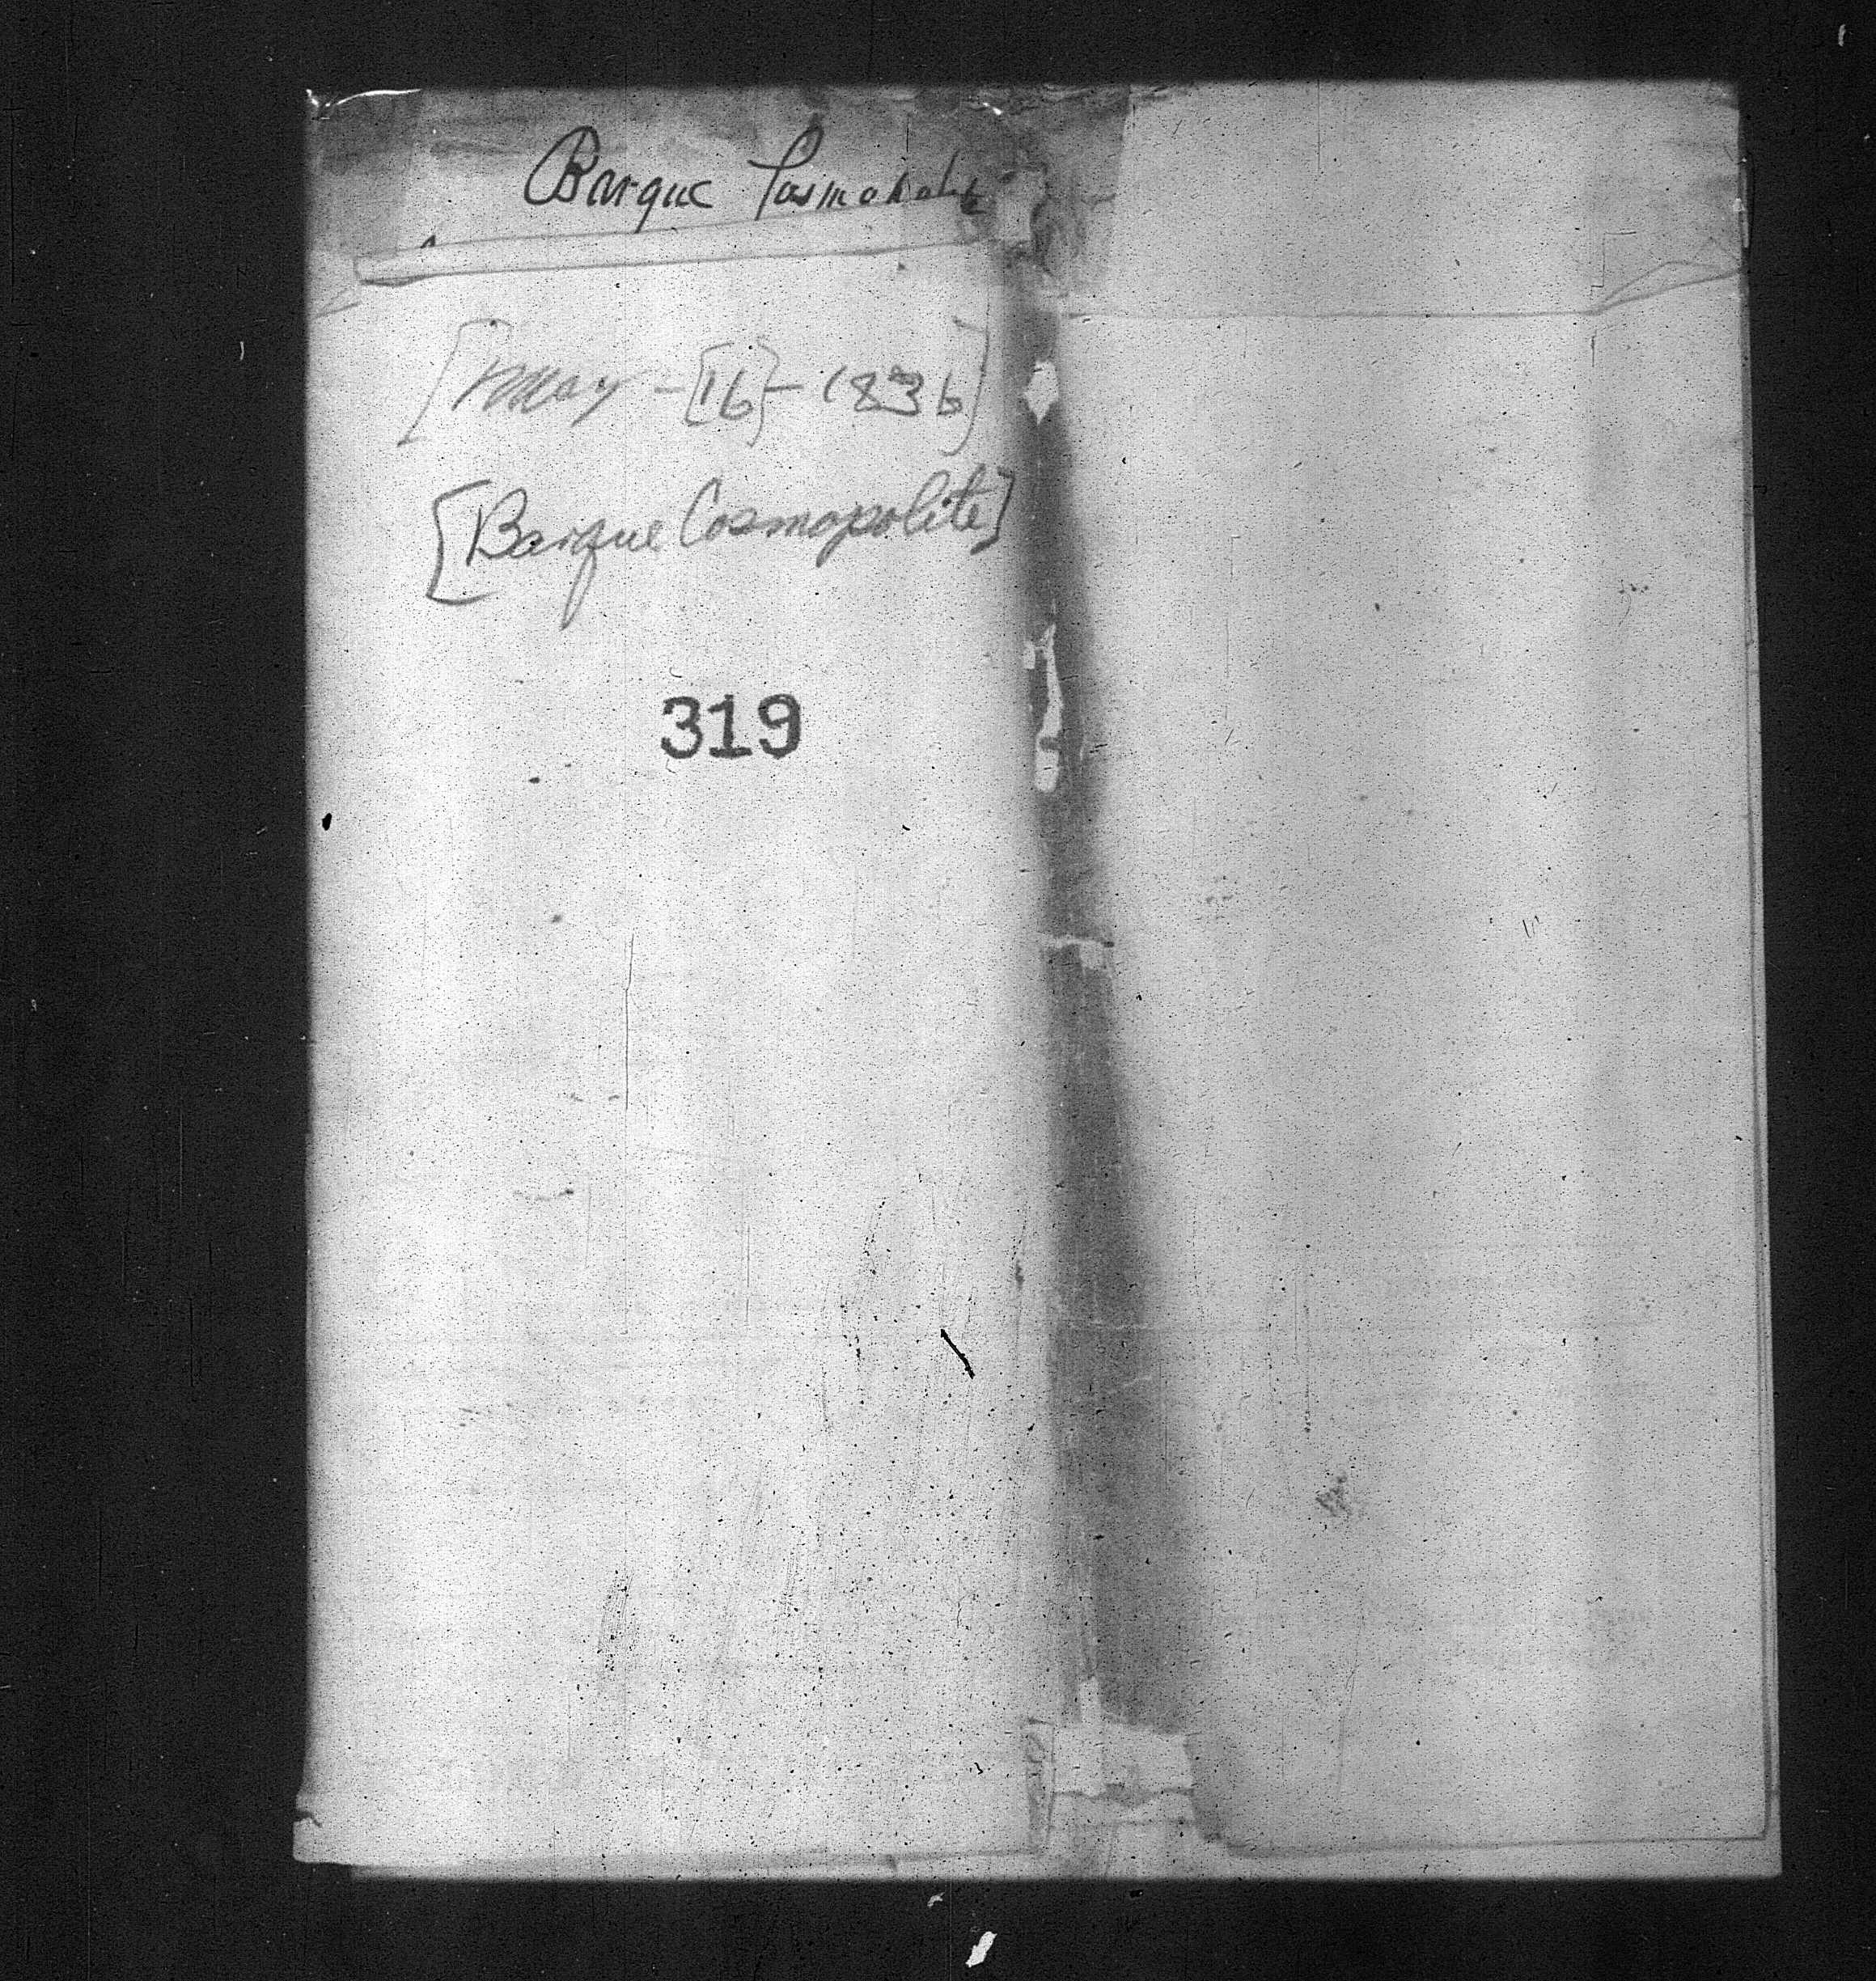 Barque Cosmopolite
[May -[16]- 1836]
[Barque Cosmopolite]
319